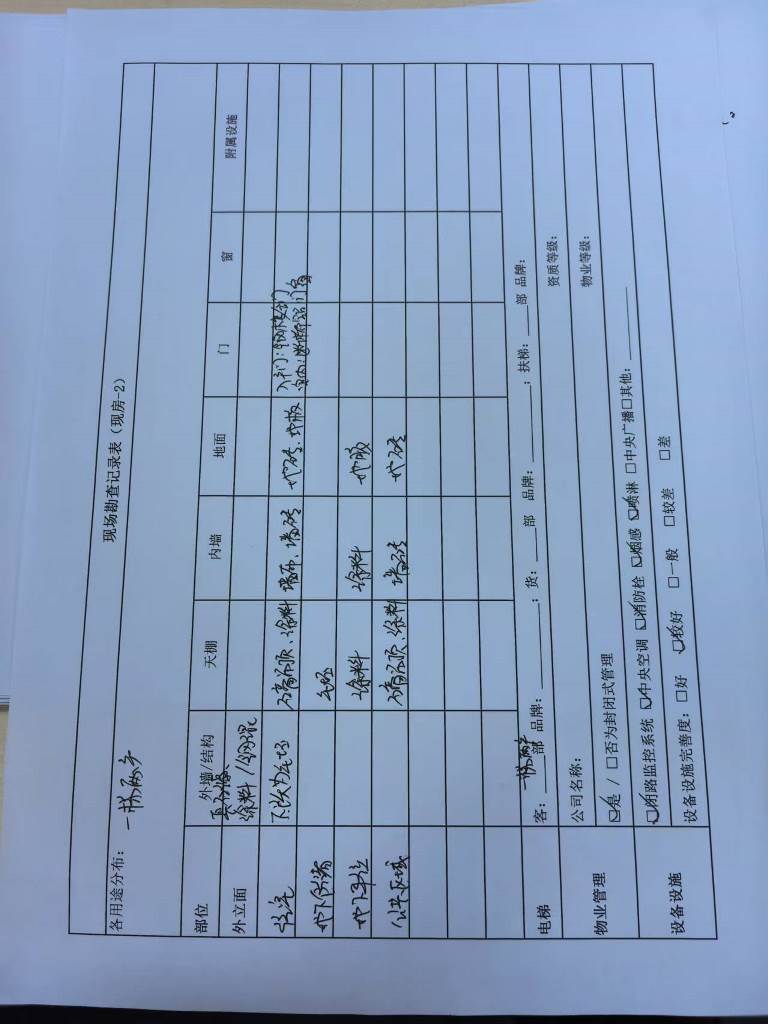 现场勘查记录表（现房-2）
各用途分布： 一梯两户
部位 外墙/结构 天棚 内墙 地面 门 窗 附属设施
外立面 真石漆、涂料/钢混
住宅 下跃为毛坯 石膏吊顶、涂料 墙布、墙砖 地砖、地板 入户门：
毛坯
地下车位 涂料 涂料 地坪
公共区域 石膏吊顶、涂料 墙砖 地砖
电梯 客：一梯两户部 品牌：________；货：____部 品牌：________；扶梯：____部 品牌：
物业管理 公司名称： 资质等级：
☑是 / □否为封闭式管理 物业等级：
设备设施 ☑闭路监控系统 ☑中央空调 ☑消防栓 ☑烟感 ☑喷淋 □中央广播□其他：________
设备设施完善度：□好 ☑较好 □一般 □较差 □差